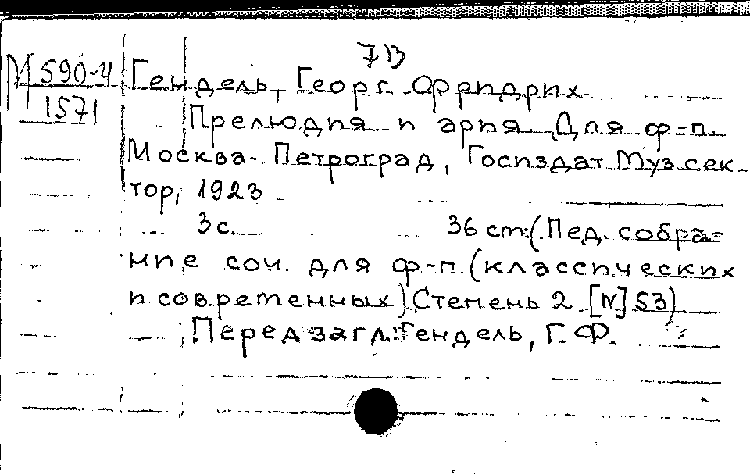 7В
М 590-4 Гендель, Георг Фридрих
1571
Прелюдия и ария Для ф-п.
Москва-Петроград, Госиздат Муз.сек-
тор, 1923
3с. 36 cm. (Пед. собра-
ние соч. для ф-п (классических
и современных) Степень 2 [N] 53)
Перед загл.: Гендель, Г. Ф.